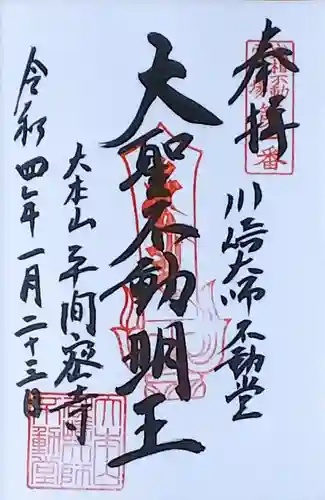 奉拝
川崎大師不動堂
大聖不動明王
大本山平間密寺
令和四年一月二十三日